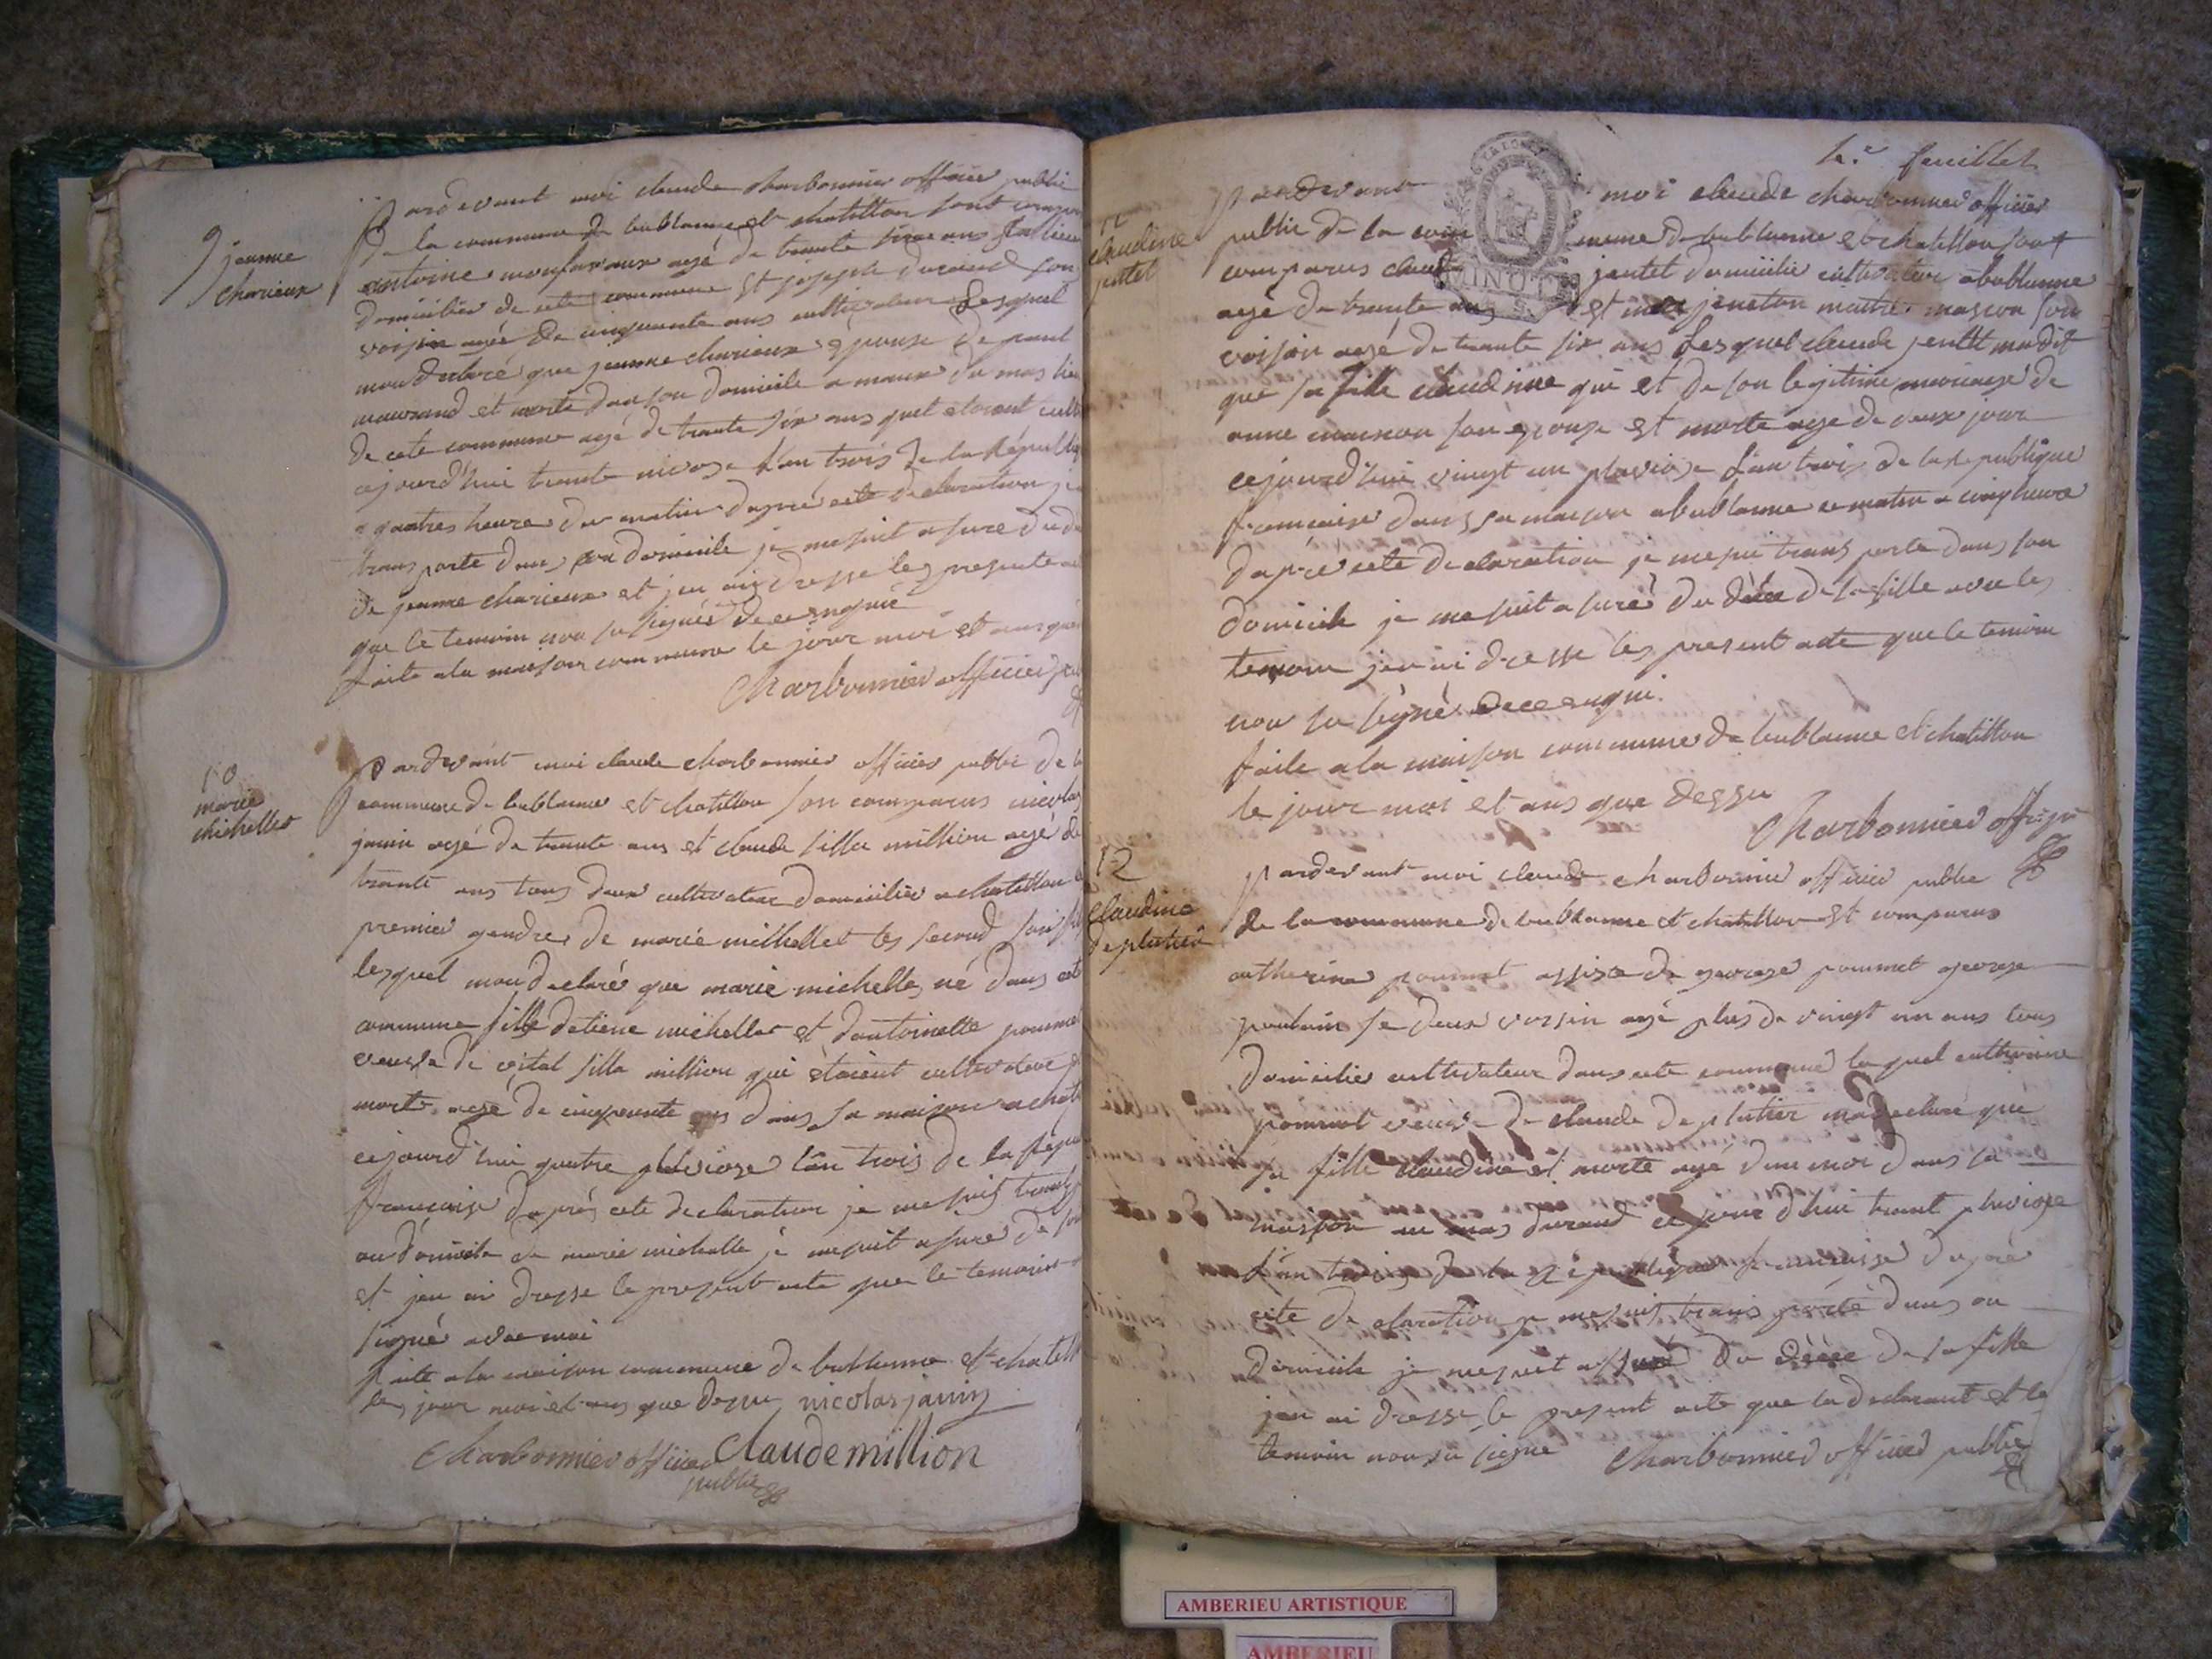 9 jeanne
charieux
Pardevant moi claude charbonnier officier public
de la commune de bublanne et chatillon sont compar
antoine agé de trante six ans
domicilier de cete commune et joseph durand son
voisin agée de cinquante ans cultivateur Lesquel
mon declaré que jeanne charieux epouse de paul
maurand et morte dan son domicile a du mas
de cete commune agé de trante six ans quel etoient cult
cejourd'hui trante nivose L'an trois de la Républiq
a quatres heure du matin daprè cete declaration je
trans porte dans son domicile je me suit asure du d
de jeanne charieux et jen ai dresse les presente a
que le temoin non su signé de ce enquié
faite a la maison commune le jour moi et ans que
charbonnier officier pub
10
marie
michellet
pardevant moi claude charbonnier officier public de l
commune de bublanne et chatillon son comparus nicolas
janin agé de trante ans et claude silla million agé de
trante ans tous deux cultivateur domicilier a chatillon l
premier gendre de marie michellet les second son fil
lesquel mon declaré que marie michelle né dans cet
commune fille detiene michellet et dantoinette pommet
veuve de vital silla million qui étoient cultivateur
morte agé de cinquante ans dans sa maison a chati
cejourd'hui quatre pluviose l'an trois de la Répu
francaise daprès cete declaration je me suis transp
au domicile de marie michelle je me suit asure de son
et jen ai dresse le present acte que le temoin
signé avec moi
faite a la maison commune de bublanne et chatill
les jour moi et ans que dessu nicolas janin
charbonnier officier claude million
public
6.e feuillet
11
claudine
jantet
pardevant moi claude charbonnier officier
public de la commune de bublanne et chatillon sont
comparus claude jantet domicilié cultivateur a bublanne
agé de trante ans et jeneton maitre masson son
voisin agé de trante six ans Lesquel claude jentet ma dit
que sa fille claudinne qui et de son legitime mariage de
anne maison son epouse est morte age de deux jour
cejourd'hui vingt un ploviose L'an trois de la Republique
francaise dans sa maison a bublanne ce matin a cinq heure
daprè cete declaration je me sui trans porte dans son
domicile je me suit asuré du décè de sa fille avec les
temoin jen ai dresse les present acte que le temoin
non su signé de ce enqui.
faite a la maison commune de bublanne et chatillon
le jour moi et ans que dessu
charbonnier off: pu
12
claudine
deplatier
pardevant moi claude charbonnier officier public
de la commune de bublanne et chatillon et comparus
catherine pommet assiste de george pommet george
poulain se deux voisin agé plus de vingt un ans tous
domicilie cultivateur dans cete commune laquel catherine
pommet veuve de claude deplatier ma declaré que
sa fille claudine et morte agé dun moi dans sa
maison au mas durand ce jour d'hui trant pluviose
L'an trois de la Republique francaisse daprè
cete declaration je me suis trans porté dans son
domicile je me suit assuré du décée de sa fille
jen ai dresse le present acte que la declarant et le
temoin non su signe charbonnier officier public
AMBERIEU ARTISTIQUE
AMBERIEU